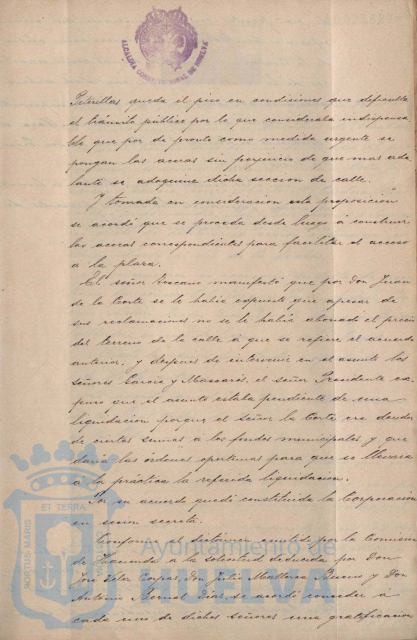 ALCALDIA CONSTITUCIONAL DE HUELVA
queda el piso en condiciones que dificulta
el tránsito público por lo que consideraba indispensa
ble que por de pronto como medida urgente se
pongan las aceras sin perjuicio de que mas ade
lante se adoquine dicha seccion de calle.
Y tomada en consideracion esta proposición
se acordó que se proceda desde luego á construir
las aceras correspondientes para facilitar el acceso
a la plaza.
El señor manifestó que por Don Juan
de la Corte se le habia expuesto que apesar de
sus reclamaciones no se le habia abonado el precio
del terreno de la calle á que se refiere el acuerdo
anterior, y despues de intervenir en el asunto los
señores Garcia y Mascarós, el señor Presidente ex
puso que el asunto estaba pendiente de una
liquidacion porque el señor la Corte era deudor
de ciertas sumas a los fondos municipales y que
daria las órdenes oportunas para que se llevara
á la práctica la referida liquidacion.
Por su acuerdo quedó constituida la Corporación
en sesion secreta.
Conforme al dictamen emitido por la Comision
de Hacienda a la solicitud deducida por Don
José Don Julio y Don
Antonio Bernal Diaz, se acordó conceder á
cada uno de dichos señores una gratificacion
PORTUS MARIS ET TERRAE
Ayuntamiento de
HUELVA